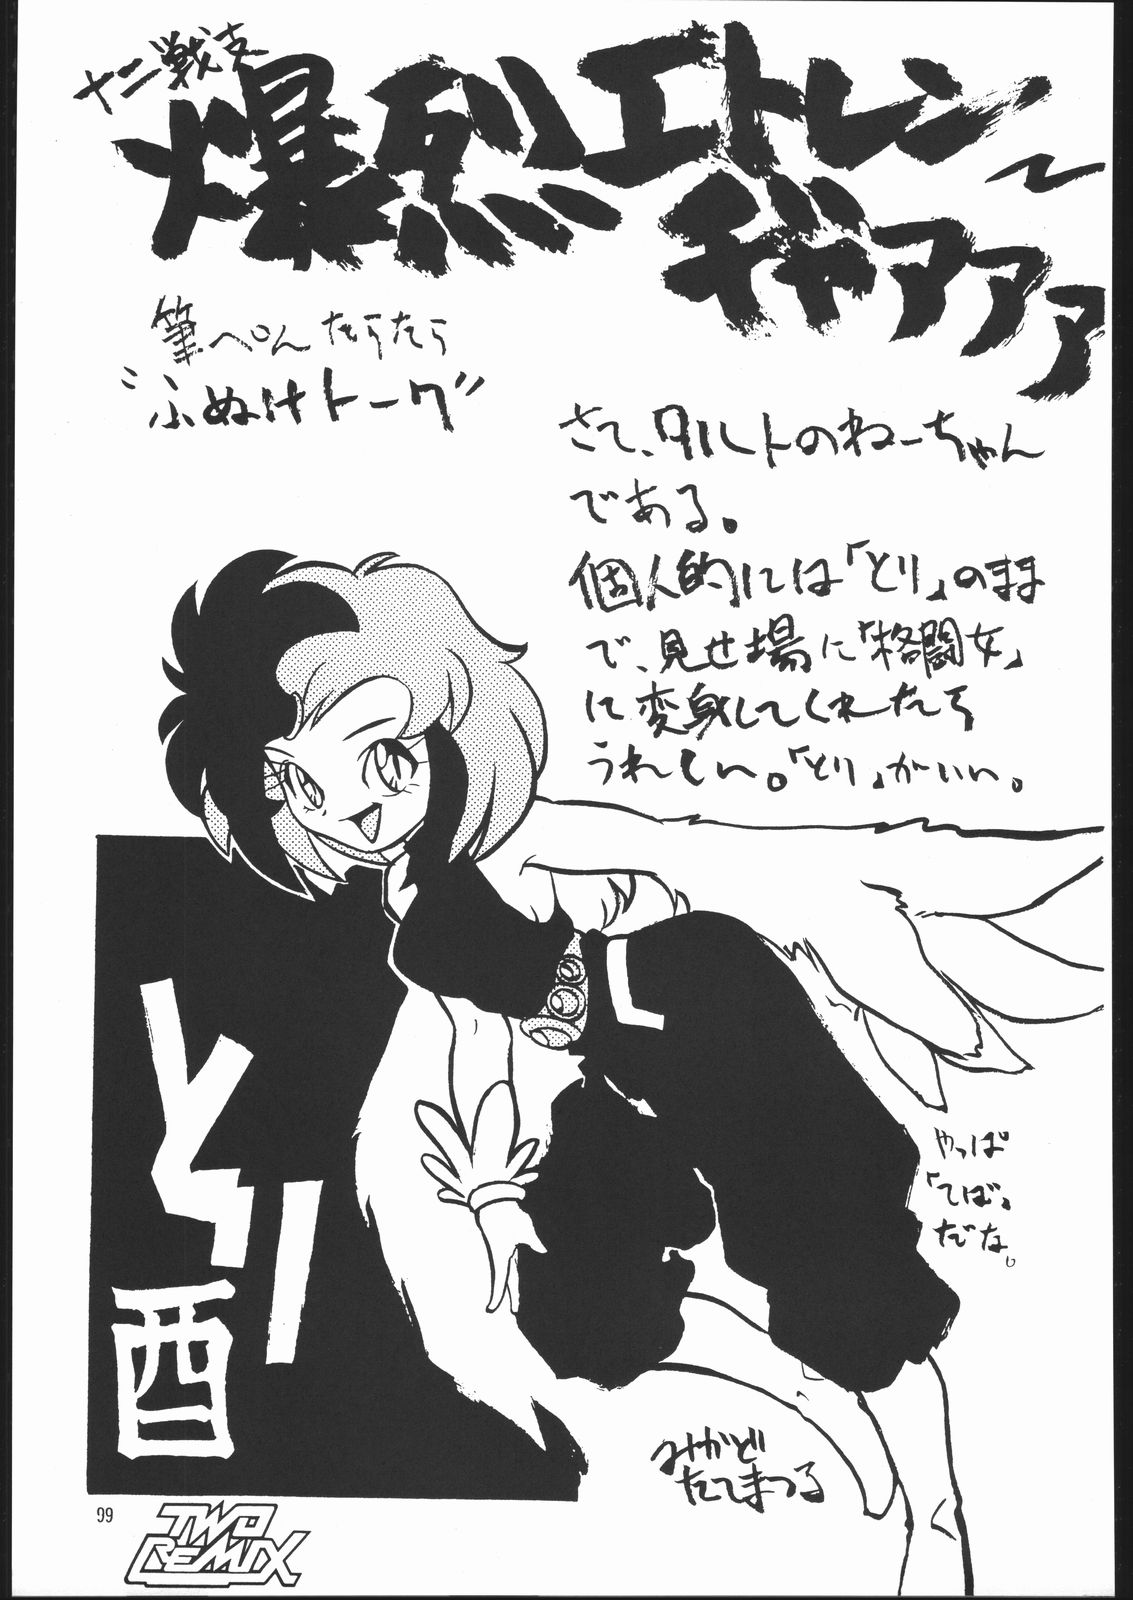 十二戦支
爆烈エトレンジャアアア
筆ぺんたらたら
"ふぬけトーク"
さて、タルトのねーちゃん
である。
個人的には「とり」のまま
で、見せ場に「格闘女」
に変身してくれたら
うれしい。「とり」がいい。
やっぱ
「てば」
だな。
とり
酉
みかど
たてまつる
99
TWO
REMIX